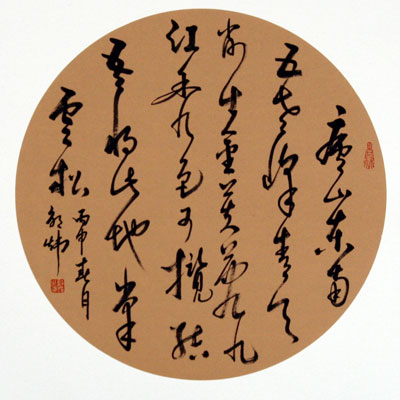 廬山東南
五老峰青天
削出金芙蓉九
江秀色可攬結
吾將此地巢
雲松
丙申春月